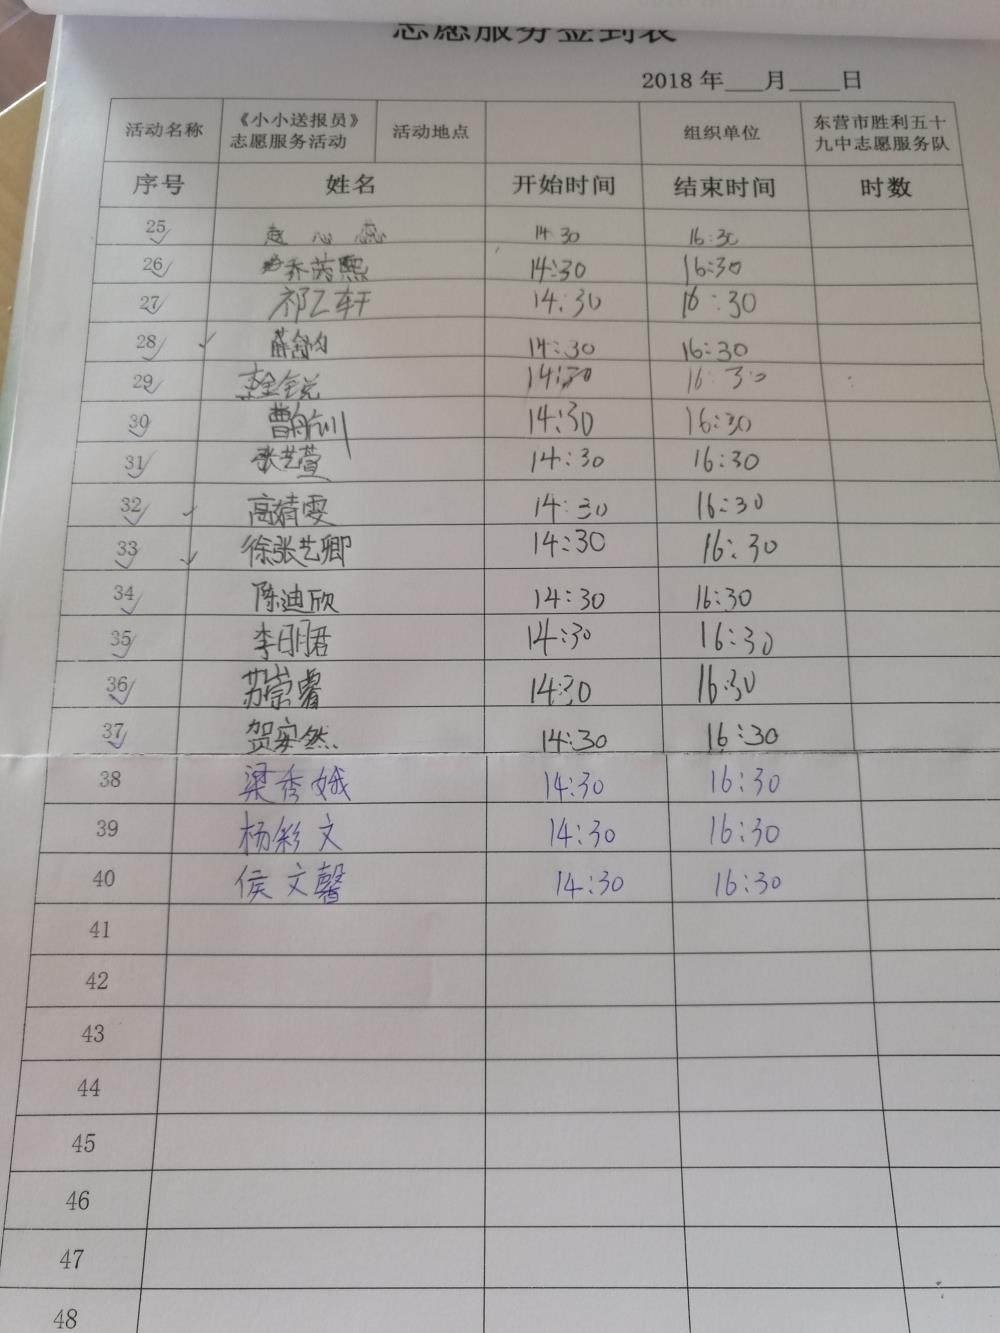 志愿服务签到表
2018 年___月____日
活动名称 《小小送报员》志愿服务活动 活动地点 组织单位 东营市胜利五十九中志愿服务队
序号 姓名 开始时间 结束时间 时数
25 赵心蕊 14:30 16:30
26 乔茵熙 14:30 16:30
27 祁乙轩 14:30 16:30
28 薛舒钧 14:30 16:30
29 14:30 16:30
30 曹舟训 14:30 16:30
31 张艺萱 14:30 16:30
32 高精雯 14:30 16:30
33 徐张艺卿 14:30 16:30
34 陈迪欣 14:30 16:30
35 李明君 14:30 16:30
36 苏崇睿 14:30 16:30
37 贺实然 14:30 16:30
38 梁秀娥 14:30 16:30
39 杨彩文 14:30 16:30
40 侯文馨 14:30 16:30
41
42
43
44
45
46
47
48